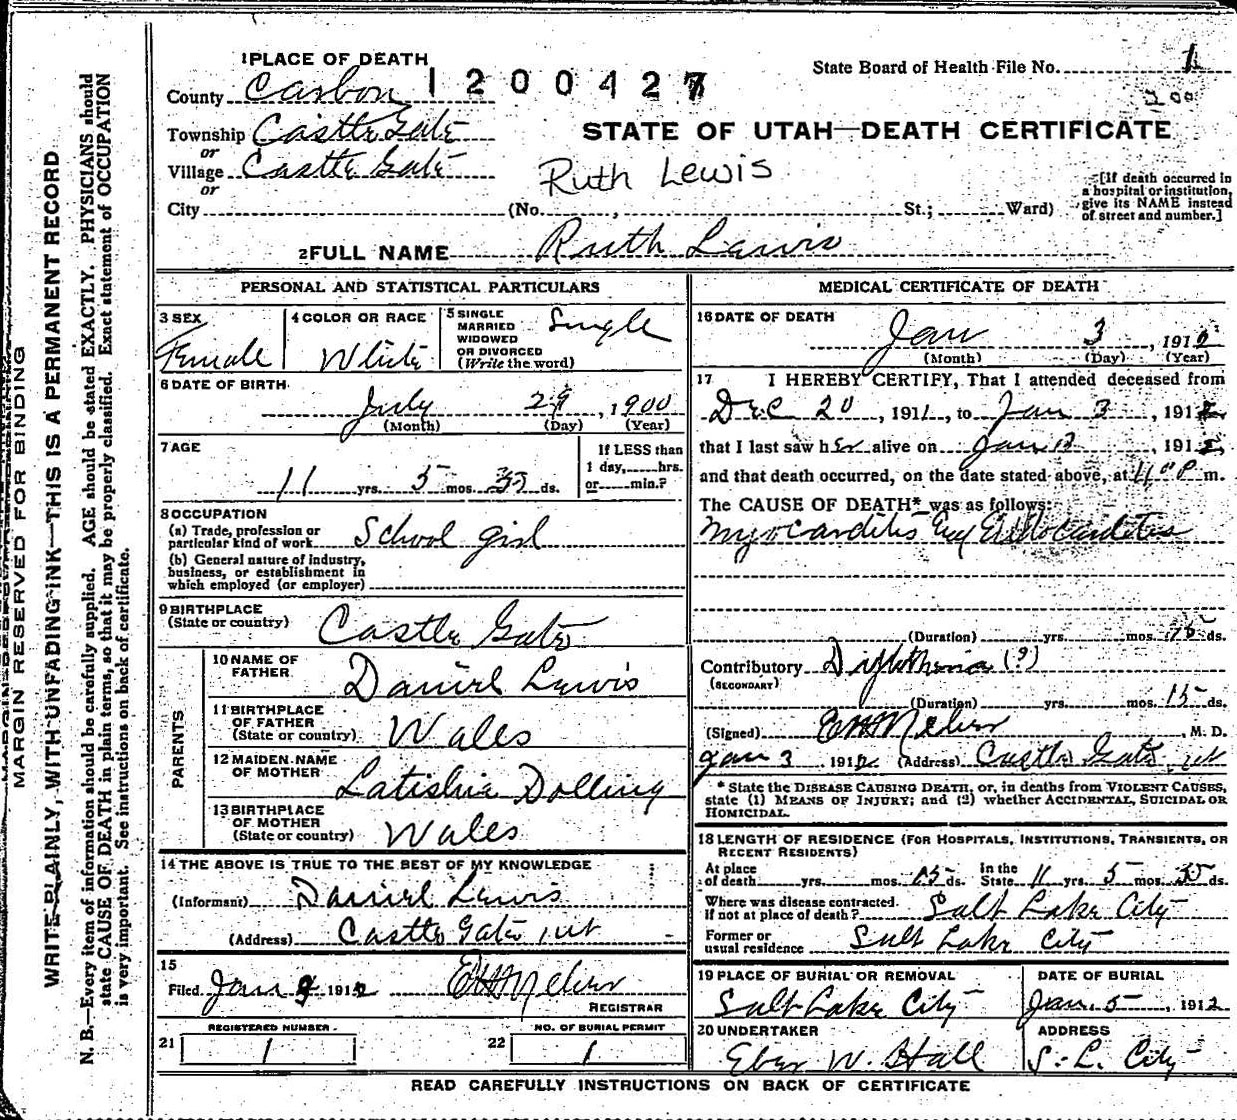 1 PLACE OF DEATH
State Board of Health File No. 1
200
County Carbon 1200427
Township Castle Gate
STATE OF UTAH—DEATH CERTIFICATE
or
Village Castle Gate
Ruth Lewis
or
City (No. , St.; Ward)
[If death occurred in a hospital or institution, give its NAME instead of street and number.]
2 FULL NAME Ruth Lewis
PERSONAL AND STATISTICAL PARTICULARS
3 SEX Female
4 COLOR OR RACE White
5 SINGLE MARRIED WIDOWED OR DIVORCED (Write the word) Single
6 DATE OF BIRTH July 29, 1900
(Month) (Day) (Year)
7 AGE 11 yrs. 5 mos. ds.
If LESS than 1 day, hrs. or min.?
8 OCCUPATION
(a) Trade, profession or particular kind of work School girl
(b) General nature of industry, business, or establishment in which employed (or employer)
9 BIRTHPLACE (State or country) Castle Gate
PARENTS
10 NAME OF FATHER Daniel Lewis
11 BIRTHPLACE OF FATHER (State or country) Wales
12 MAIDEN NAME OF MOTHER Latishia Dolling
13 BIRTHPLACE OF MOTHER (State or country) Wales
14 THE ABOVE IS TRUE TO THE BEST OF MY KNOWLEDGE
(Informant) Daniel Lewis
(Address) Castle Gate Ut
15
Filed Jan 1912
REGISTRAR
REGISTERED NUMBER
21 1
NO. OF BURIAL PERMIT
22 1
MEDICAL CERTIFICATE OF DEATH
16 DATE OF DEATH Jan 3, 1912
(Month) (Day) (Year)
17 I HEREBY CERTIFY, That I attended deceased from
Dec 20, 1911, to Jan 3, 1912
that I last saw her alive on Jan , 1912,
and that death occurred, on the date stated above, at P m.
The CAUSE OF DEATH* was as follows:
Myocarditis Endocarditis
(Duration) yrs. mos. 15 ds.
Contributory Diphtheria (?)
(SECONDARY)
(Duration) yrs. mos. 15 ds.
(Signed) , M. D.
Jan 3 1912 (Address) Castle Gate Ut
* State the DISEASE CAUSING DEATH, or, in deaths from VIOLENT CAUSES, state (1) MEANS OF INJURY; and (2) whether ACCIDENTAL, SUICIDAL OR HOMICIDAL.
18 LENGTH OF RESIDENCE (FOR HOSPITALS, INSTITUTIONS, TRANSIENTS, OR RECENT RESIDENTS)
At place of death yrs. mos. 15 ds. In the State 11 yrs. 5 mos. ds.
Where was disease contracted. If not at place of death? Salt Lake City
Former or usual residence Salt Lake City
19 PLACE OF BURIAL OR REMOVAL Salt Lake City
DATE OF BURIAL Jan. 5, 1912
20 UNDERTAKER Eber W. Hall
ADDRESS S. L. City
READ CAREFULLY INSTRUCTIONS ON BACK OF CERTIFICATE
MARGIN RESERVED FOR BINDING
WRITE PLAINLY, WITH UNFADING INK—THIS IS A PERMANENT RECORD
N. B.—Every item of information should be carefully supplied. AGE should be stated EXACTLY. PHYSICIANS should
state CAUSE OF DEATH in plain terms, so that it may be properly classified. Exact statement of OCCUPATION
is very important. See instructions on back of certificate.